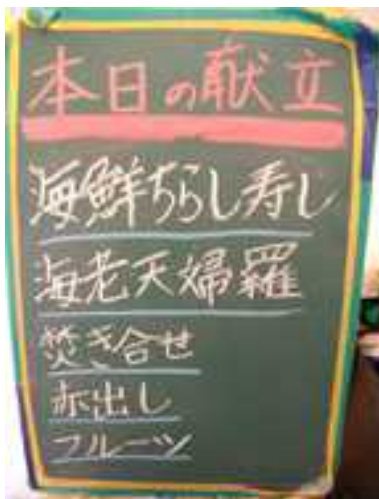 本日の献立
海鮮ちらし寿し
海老天婦羅
焚き合せ
赤出し
フルーツ